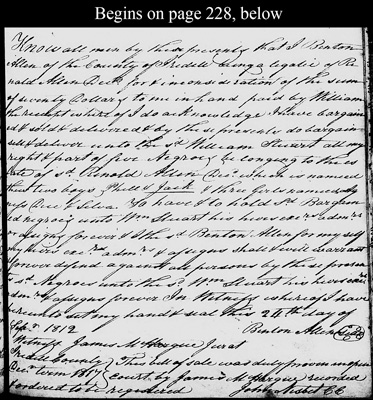 Begins on page 228, below
Know all men by these presents that I Benton
Allen of the County of Iredell being a legatee of Re
nold Allen Decd. for & in consideration of the sum
of seventy Dollars to me in hand paid by William
the receipt whereof I do acknowledge I have bargain
ed & sold & delivered & by these presents do bargain
sell & deliver unto the sd. William Stewart all my
right & part of five Negroes belonging to the es
tate of sd. Renold Allen Decd. which is named
thus two boys Phill & Jack & three Girls named
& Silva To have & to hold sd. Bargain
ed negroes unto Wm Stuart his heirs exrs. admrs.
or assigns forever & I the sd. Benton Allen for my self
my heirs exrs. admrs. & assigns shall & will warrant
& forever defend against all persons by these presents
sd. Negroes unto the sd. Wm Stuart his heirs exrs.
admrs. & assigns forever In Witness whereof I have
set my hand & seal this 24th day of
Sept. 1812 Benton Allen
Witness James McHargue Jurat
Iredell County This bill of sale was duly proven in open
term 1817 court by James McHargue recorded
& ordered to be registered